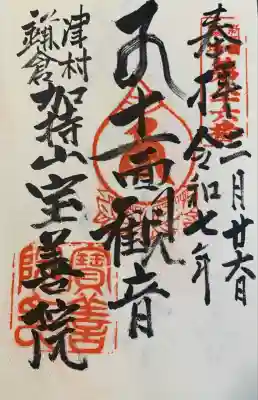 奉拝
令和七年
三月廿六日
十一面観音
津村
鎌倉
加持山宝善院
寶善院印